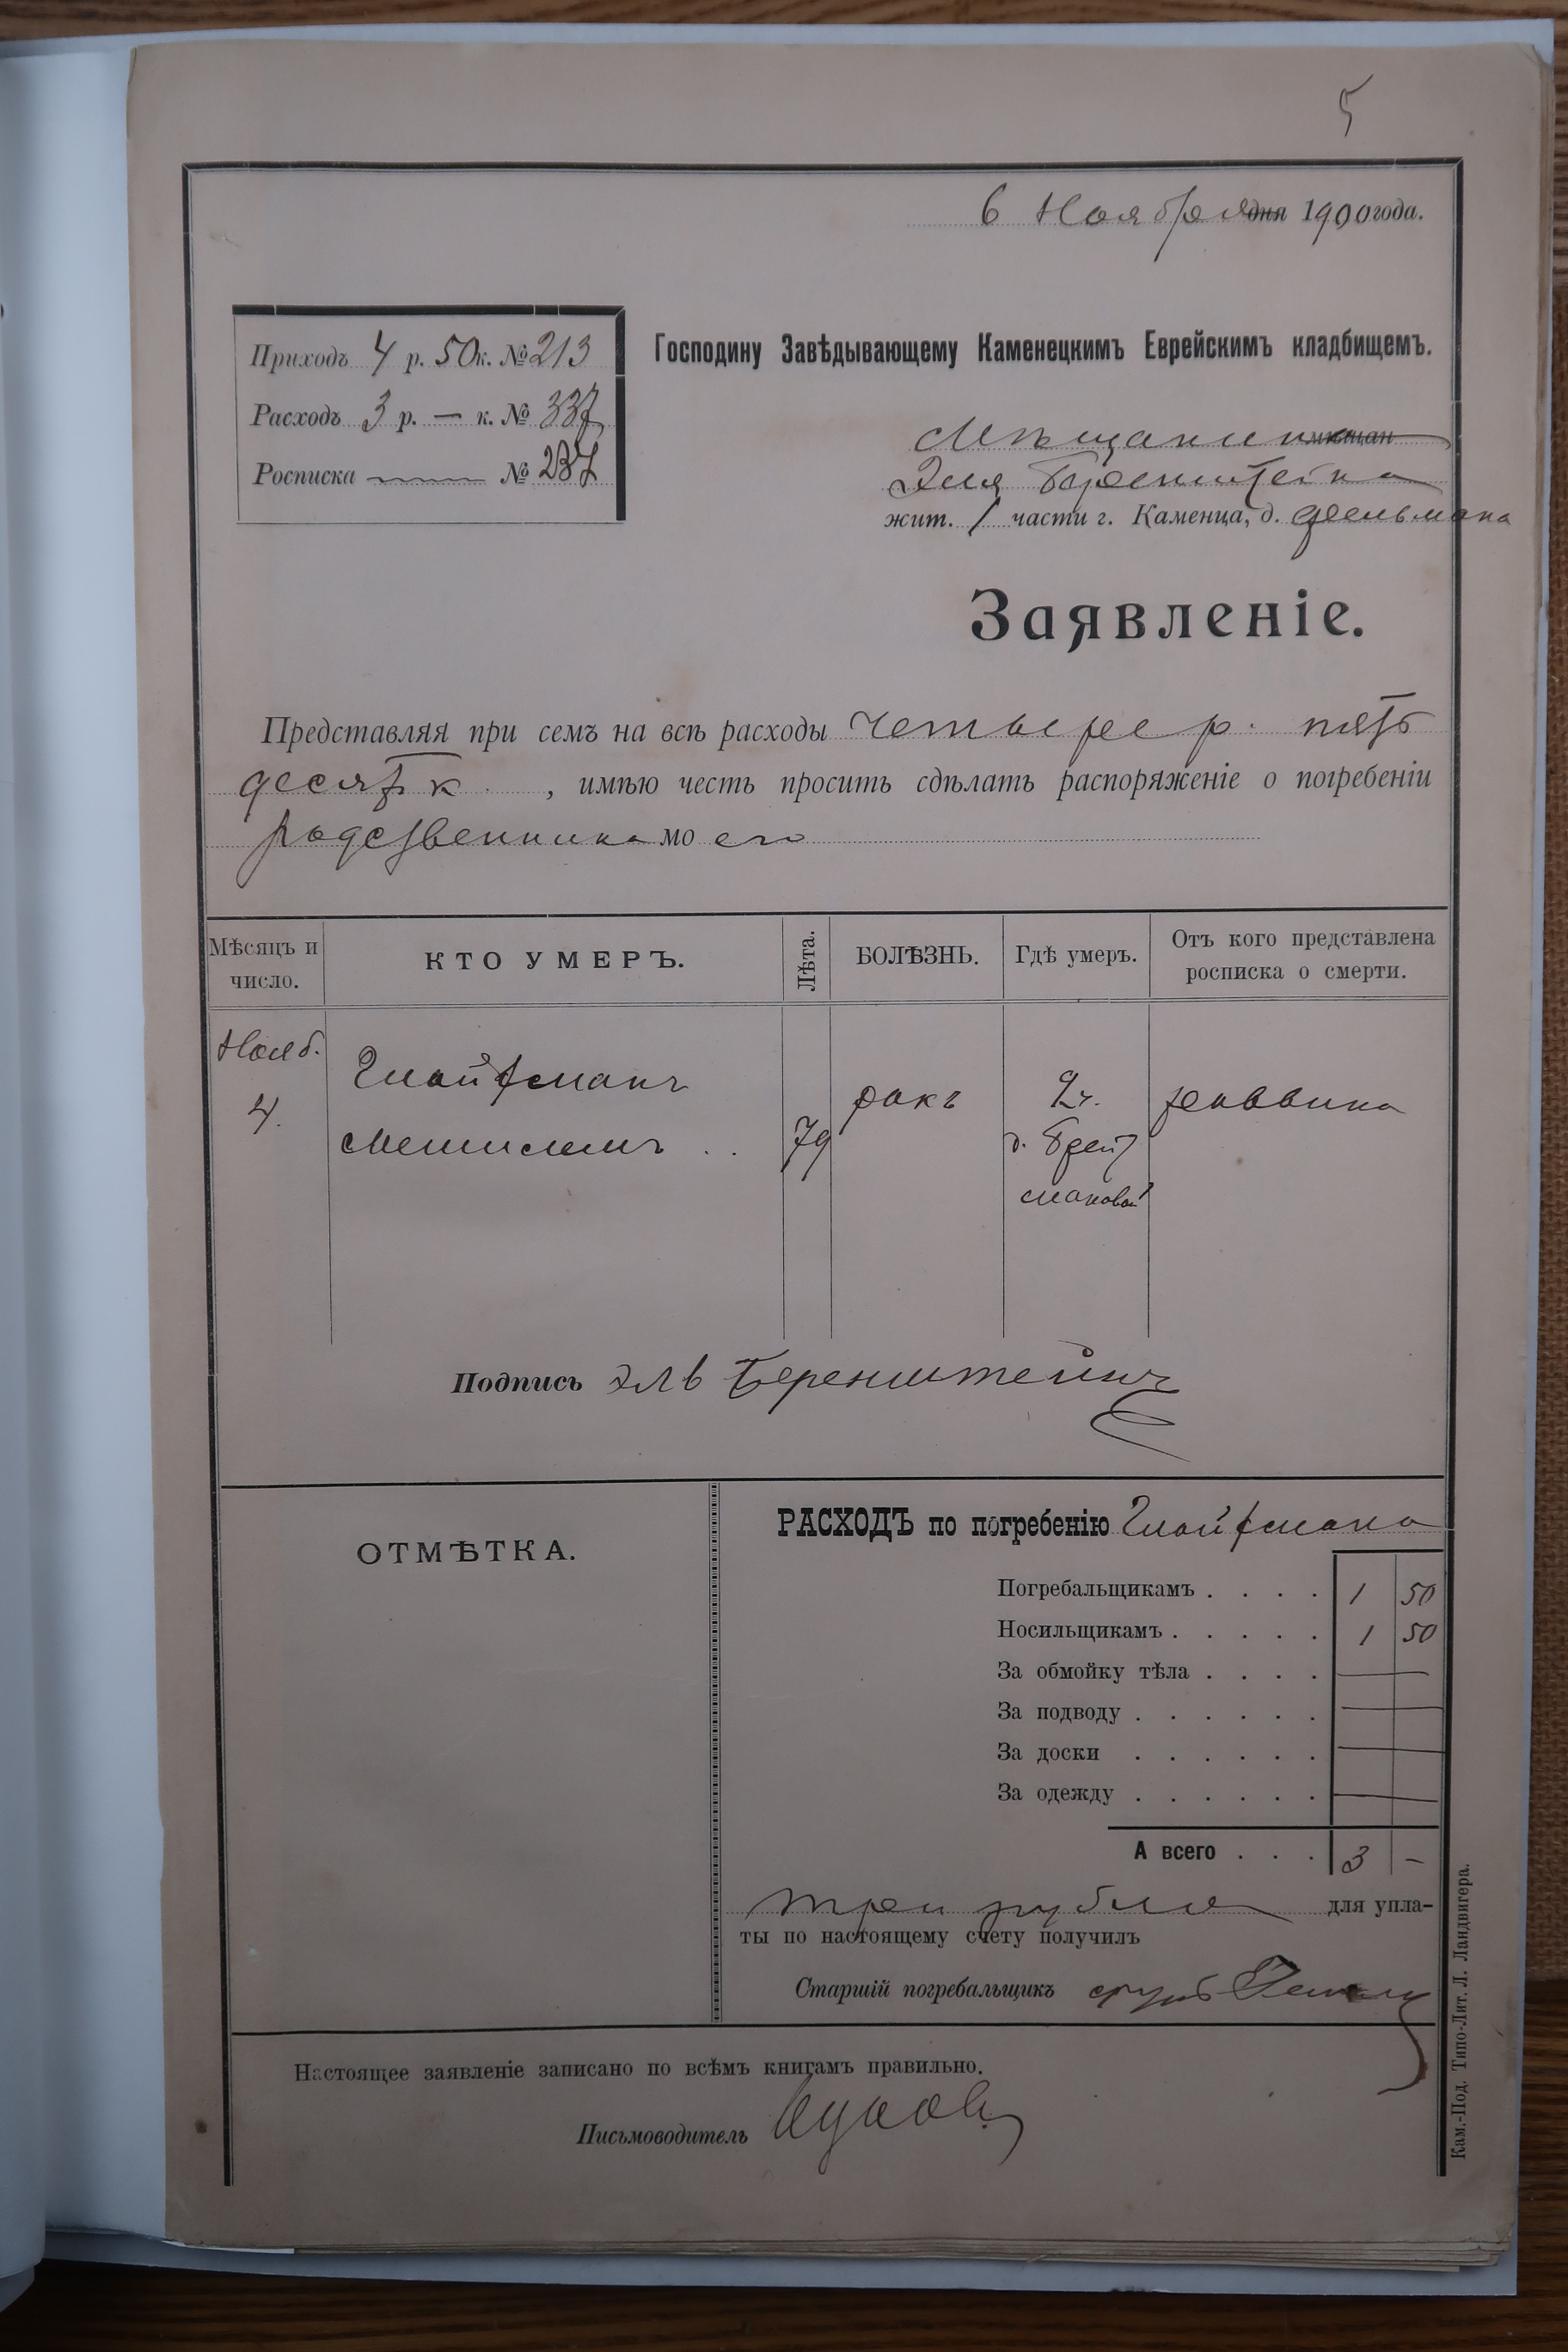 5
6 Ноября дня 1900 года.
Приходъ 4 р. 50 к. № 213
Расходъ 3 р. — к. № 337
Росписка № 237
Господину Завѣдывающему Каменецкимъ Еврейскимъ кладбищемъ.
Мѣщанина
Эля Беренштейна
жит. 1 части г. Каменца, д. Фельмана
Заявленіе.
Представляя при семъ на всѣ расходы четыре р. пять
десят к., имѣю честь просить сдѣлать распоряженіе о погребеніи
родственника моего
Мѣсяцъ и число. КТО УМЕРЪ. Лѣта. БОЛѢЗНЬ. Гдѣ умеръ. Отъ кого представлена росписка о смерти.
Нояб.
4. 79 ракъ 2 ч. раввина
Мешилемъ
д. Брейт
мановой
Подпись Эль Беренштейнъ
ОТМѢТКА.
РАСХОДЪ по погребенію
Погребальщикамъ . . . . 1 50
Носильщикамъ . . . . . 1 50
За обмойку тѣла . . . . —
За подводу . . . . . . —
За доски . . . . . . —
За одежду . . . . . . —
А всего . . . 3 —
три рубля для упла-
ты по настоящему счету получилъ
Старшій погребальщикъ
Настоящее заявленіе записано по всѣмъ книгамъ правильно.
Письмоводитель
Кам.-Под. Типо-Лит. Л. Ландвигера.